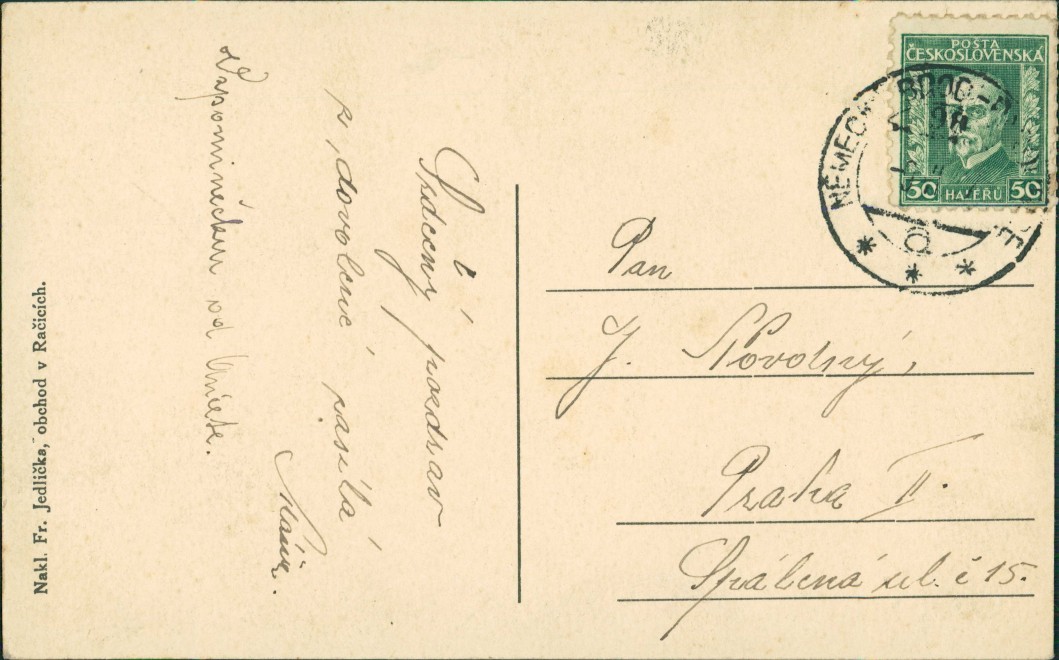 Srdečný pozdrav
z dovolené zasílá
Máňa.
Vzpomínečku od
Nakl. Fr. Jedlička, obchod v Račicích.
POŠTA
ČESKOSLOVENSKÁ
50 HALÉŘŮ 50
NĚMECKÝ BROD
Pan
J. Novotný,
Praha II.
Spálená ul. č 15.